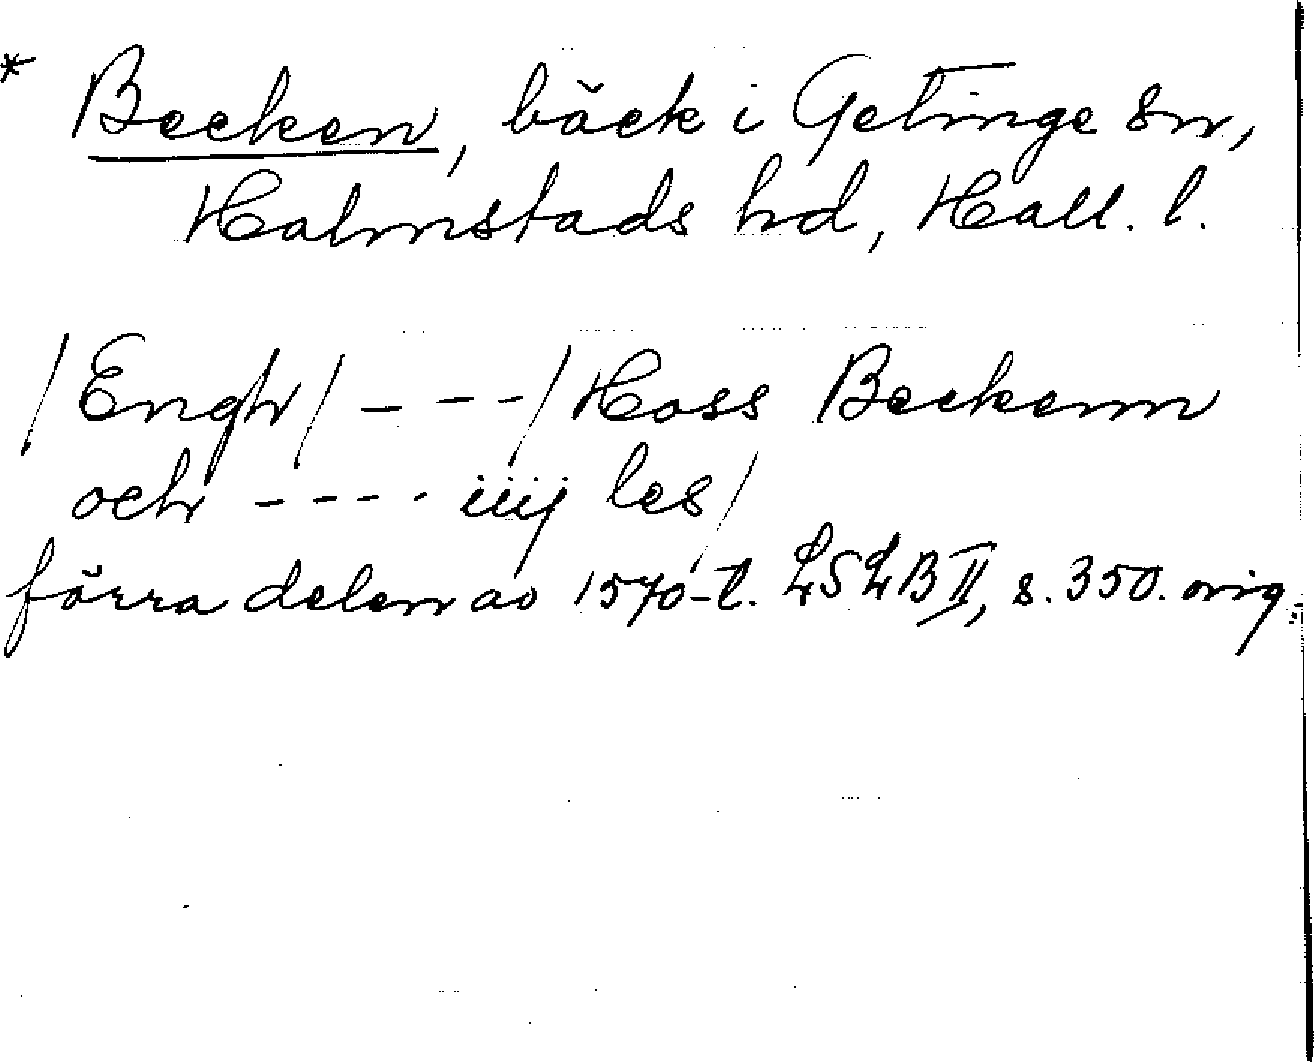 * Becken, bäck i Getinge sn,
Halmstads hd, Hall. l.
/Engh/ - - - /Hoss Beckenn
och - - - - iiij les/
förra delen av 1570-t. LSLB II, s. 350. orig.